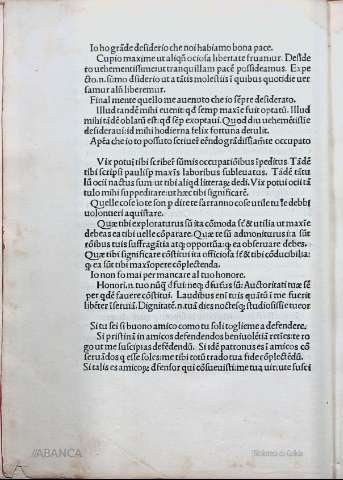 Io ho grãde desiderio che noi habiamo bona pace.
Cupio maxime ut aliqñ ociosa libertate fruamur. Deside
ro uehementissime ut tranquillam pacẽ possideamus. Expe
cto. n. sũmo dẽsiderio ut a tãtis molestiis ĩ quibus quotidie uer
samur alñ liberemur.
Final mente quello me auenuto che io sẽpre desiderato.
Illud tandẽ mihi euenit: qđ semp maxĩe fuit optatũ. Illud
mihi tãdẽ oblatũ est: qđ sẽp exoptaui. Quod diu uehemẽtissie
desideraui: id mihi hodierna felix fortuna detulit.
Apẽa che io to possuto scriuer eẽndo grãdissiamẽte occupato
Vix potui tibi scribeř sũmis occupatiõibus ĩpeditus. Tãdẽ
tibi scripsi paulisp maxĩs laboribus subleuatus. Tãdẽ tãtu
lũ ocii nactus sum ut tibi aliqđ litteraʒ dedi. Vix potui ocii tã
tulo mihi suppeditare ut hec tibi significarẽ.
Quelle cose io te son p dire te sarranno cose utile tu le debbi
uolontieri aquistare.
Quæ tibi exploraturus sũ ita cõmoda sẽ & utilia ut maxĩe
debeas ea tibi uelle cõparare. Quæ te sũ admoniturus ita sũt
rõibus tuis suffragãtia atqȝ opportũa: qȝ ea obseruare debes.
Quæ tibi significare cõstitui ita officiosa sẽ & tibi cõducibilia:
qȝ ea sũt tibi maxĩopere cõplectenda.
Io non so mai per mancare al tuo honore.
Honori. n. tuo nũqȝ đfui: neqȝ đfuřus sũ: Auctoritati tuæ sẽ
per qđẽ fauere cõstitui. Laudibus eni tuis quãtũ ĩ me fuerit
libẽter ĩseruiã. Dignitatẽ. n. tuã dies noctesqȝ studiosissie tueor
Si tu sei si buono amico como tu soli toglieme a defendere.
Si pristinã in amicos defendendos beniuolẽtiã retĩes: te ro
go ut me suscipias defẽdendũ. Si idẽ patronus es ĩ amicos cõ
seruãdos q esse soles: me tibi totũ trado tua fide cõplectẽdũ.
Si talis es amicoȝ đfensor qui cõsueuisti: me tua uirtute suscí
//ABANCA
Biblioteca de Galicia